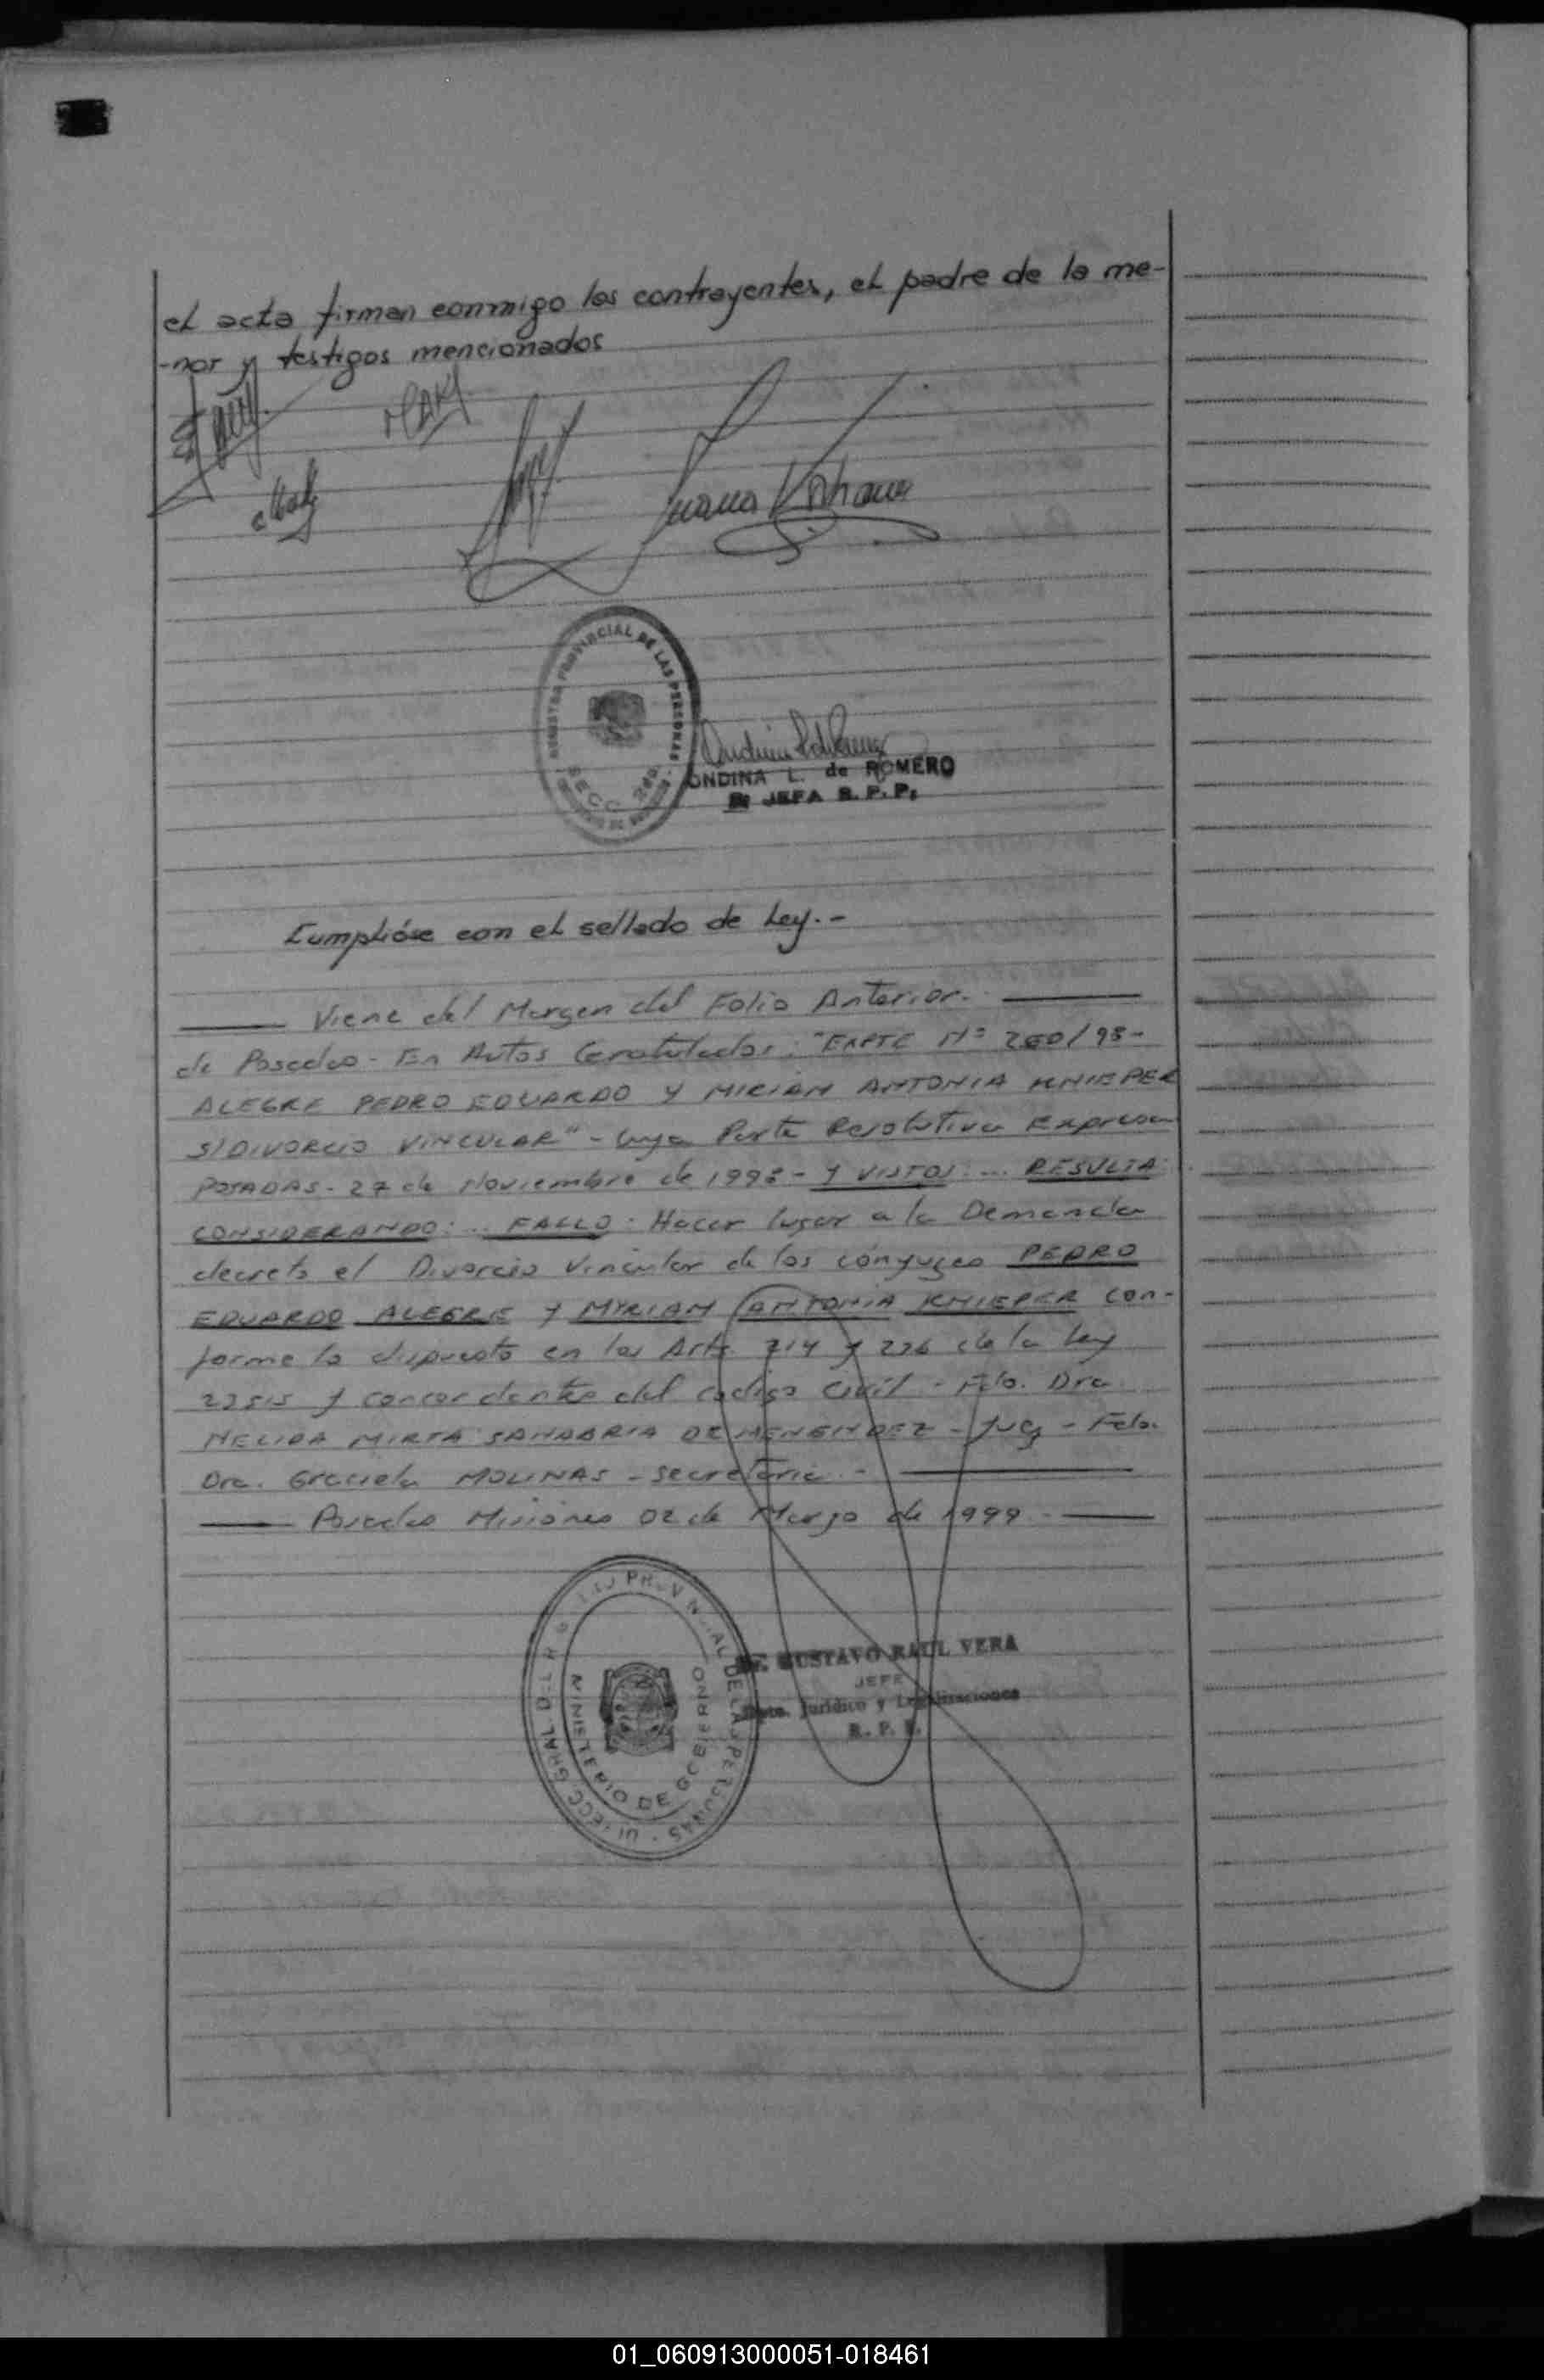 el acta firman conmigo los contrayentes, el padre de la me-
-nor y testigos mencionados
Juana
REGISTRO PROVINCIAL DE LAS PERSONAS
SECC. 2da.
ONDINA L. de ROMERO
JEFA R. P. P.
Cumplióse con el sellado de Ley.-
Viene del Margen del Folio Anterior.
de Posadas - En Autos Caratulados: "EXPTE Nº 260/98-
ALEGRE PEDRO EDUARDO Y MIRIAM ANTONIA KNIEPER
S/DIVORCIO VINCULAR" - Cuya Parte Resolutiva Expresa
POSADAS - 27 de Noviembre de 1998 - Y VISTOS: ... RESULTA:
CONSIDERANDO: ... FALLO: Hacer lugar a la Demanda
decreto el Divorcio Vincular de los cónyuges PEDRO
EDUARDO ALEGRE y MYRIAM ANTONIA KNIEPER con-
forme lo dispuesto en los Arts. 214 y 236 de la Ley
23515 y concordantes del codigo Civil - Fdo. Dra.
NELIDA MIRTA SANABRIA DE MENENDEZ - Juez - Fdo.
Dra. Graciela MOLINAS - secretaria -
Posadas Misiones 02 de Marzo de 1999 -
MINISTERIO DE GOBIERNO
GRAL DEL REGISTRO PROVINCIAL DE LAS PERSONAS
Dr. GUSTAVO RAUL VERA
JEFE
Dpto. Jurídico y Legalizaciones
R. P. P.
01_060913000051-018461